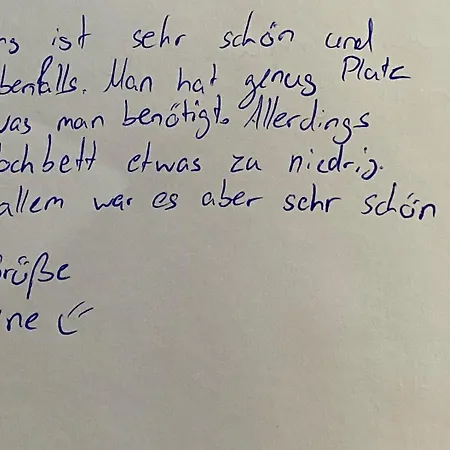 ng ist sehr schön und
benfalls. Man hat genug Platz
was man benötigt. Allerdings
ochbett etwas zu niedrig.
allem war es aber sehr schön
Grüße
ine